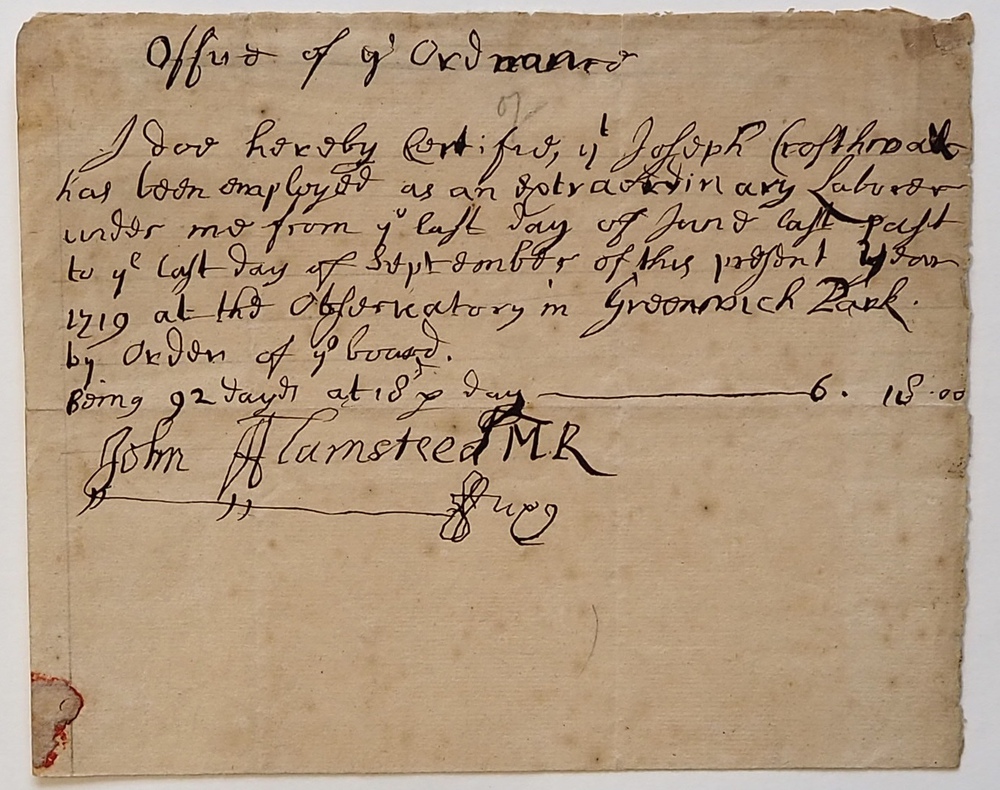 Office of ye Ordnance
I doe hereby Certifie, yt Joseph Crosthwait
has been employed as an extraordinary Laborer
under me from ye last day of June last past
to ye last day of September of this present year
1719 at the Observatory in Greenwich Park.
by Order of ye board.
Being 92 days at 18d p day 6. 18. 00
John Flamsteed MR